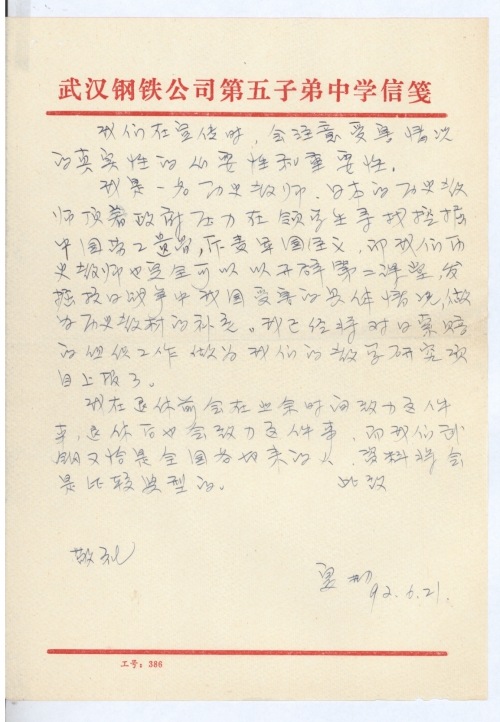 武汉钢铁公司第五子弟中学信笺
我们在宣传时，会注意受害情况
的真实性的必要性和重要性。
我是一名历史教师，日本的历史教
师顶着政府压力在领学生寻找挖掘
中国劳工遗骨，斥责军国主义，而我们历
史教师也完全可以以开辟第二课堂，发
掘抗日战争中我国受害的具体情况，做
为历史教材的补充。我已经将对日索赔
的组织工作做为我们的教学研究项
目上报了。
我在退休前会在业余时间致力这件
事，退休后也会致力这件事，而我们武
钢又恰是全国各地来的人，资料将会
是比较典型的。 此致
敬礼
92.6.21.
工号：386